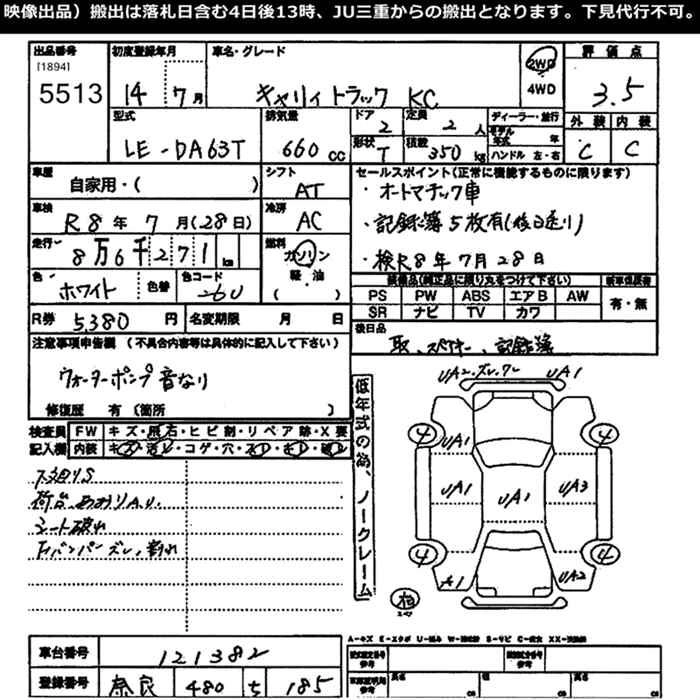 映像出品）搬出は落札日含む4日後13時、JU三重からの搬出となります。下見代行不可。
出品番号 初度登録年月 車名・グレード 2WD 評価点
[1894]
5513 14 7月 キャリィトラック KC 4WD 3.5
型式 排気量 ドア 2 定員 2人 ディーラー・並行 外装 内装
モデル年式 年
LE-DA63T 660cc 形状 T 積載 350kg ハンドル 左・右 C C
車歴 自家用・( ) シフト AT セールスポイント(正常に機能するものに限ります)
・オートマチック車
車検 R8年7月(28日) 冷房 AC ・記録簿5枚有(後日送り)
走行 8万6千271km 燃料 ガソリン ・検R8年7月28日
軽・油
( )
色 ホワイト 色替 色コード 26U 装備品(純正品に限り丸をつけて下さい) 新車保証書
PS PW ABS エアB AW 有・無
SR ナビ TV カワ
R券 5,380円 名変期限 月 日 後日品
取、スペアキー、記録簿
注意事項申告欄（不具合内容等は具体的に記入して下さい）
ウォーターポンプ音なり
修復歴 有(箇所 )
検査員記入欄 FW キズ・飛石・ヒビ割・リペア跡・X要
内装 キズ・汚レ・コゲ・穴・スレ・キレ・破レ
下廻りS
荷台、あおりA.U.
シート破れ
Fバンパーズレ、割れ
低年式の為、ノークレーム
UA2・ズレ・ワレ UA1
4 UA1 4
UA1 UA1 UA3
4 4
A1 UA2
A-キズ E-エクボ U-凹み W-補修跡 S-サビ C-腐食 XX-交換済
車台番号 121382
登録番号 奈良 480 ち 185
参考
参考